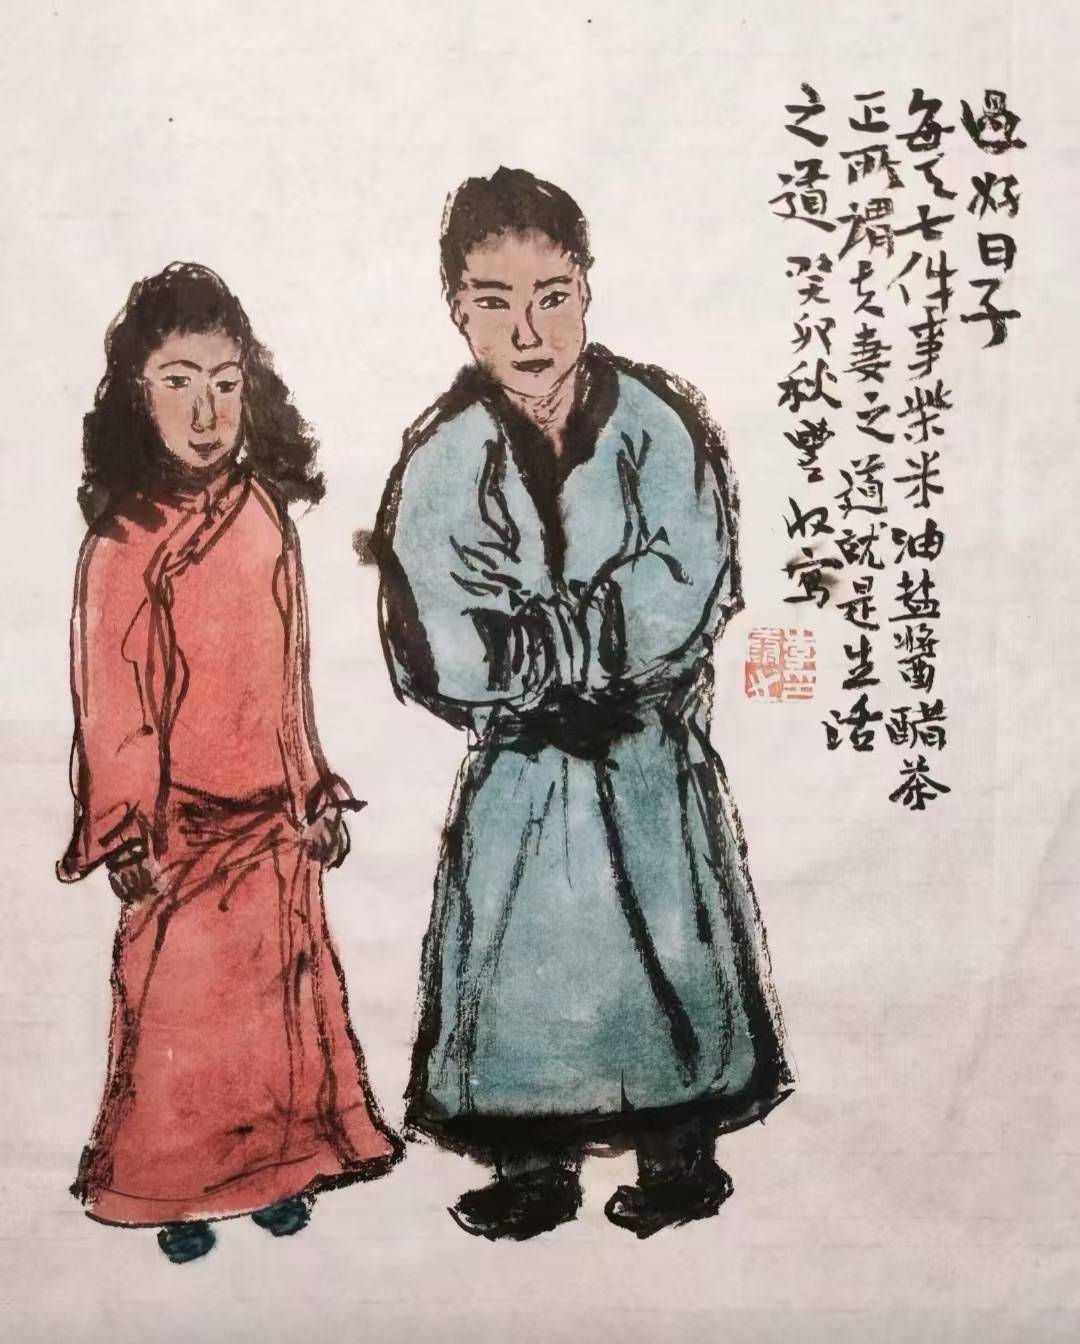 過好日子
每天七件事柴米油盐醬醋茶
正所謂夫妻之道就是生活
之道 癸卯秋豐收寫